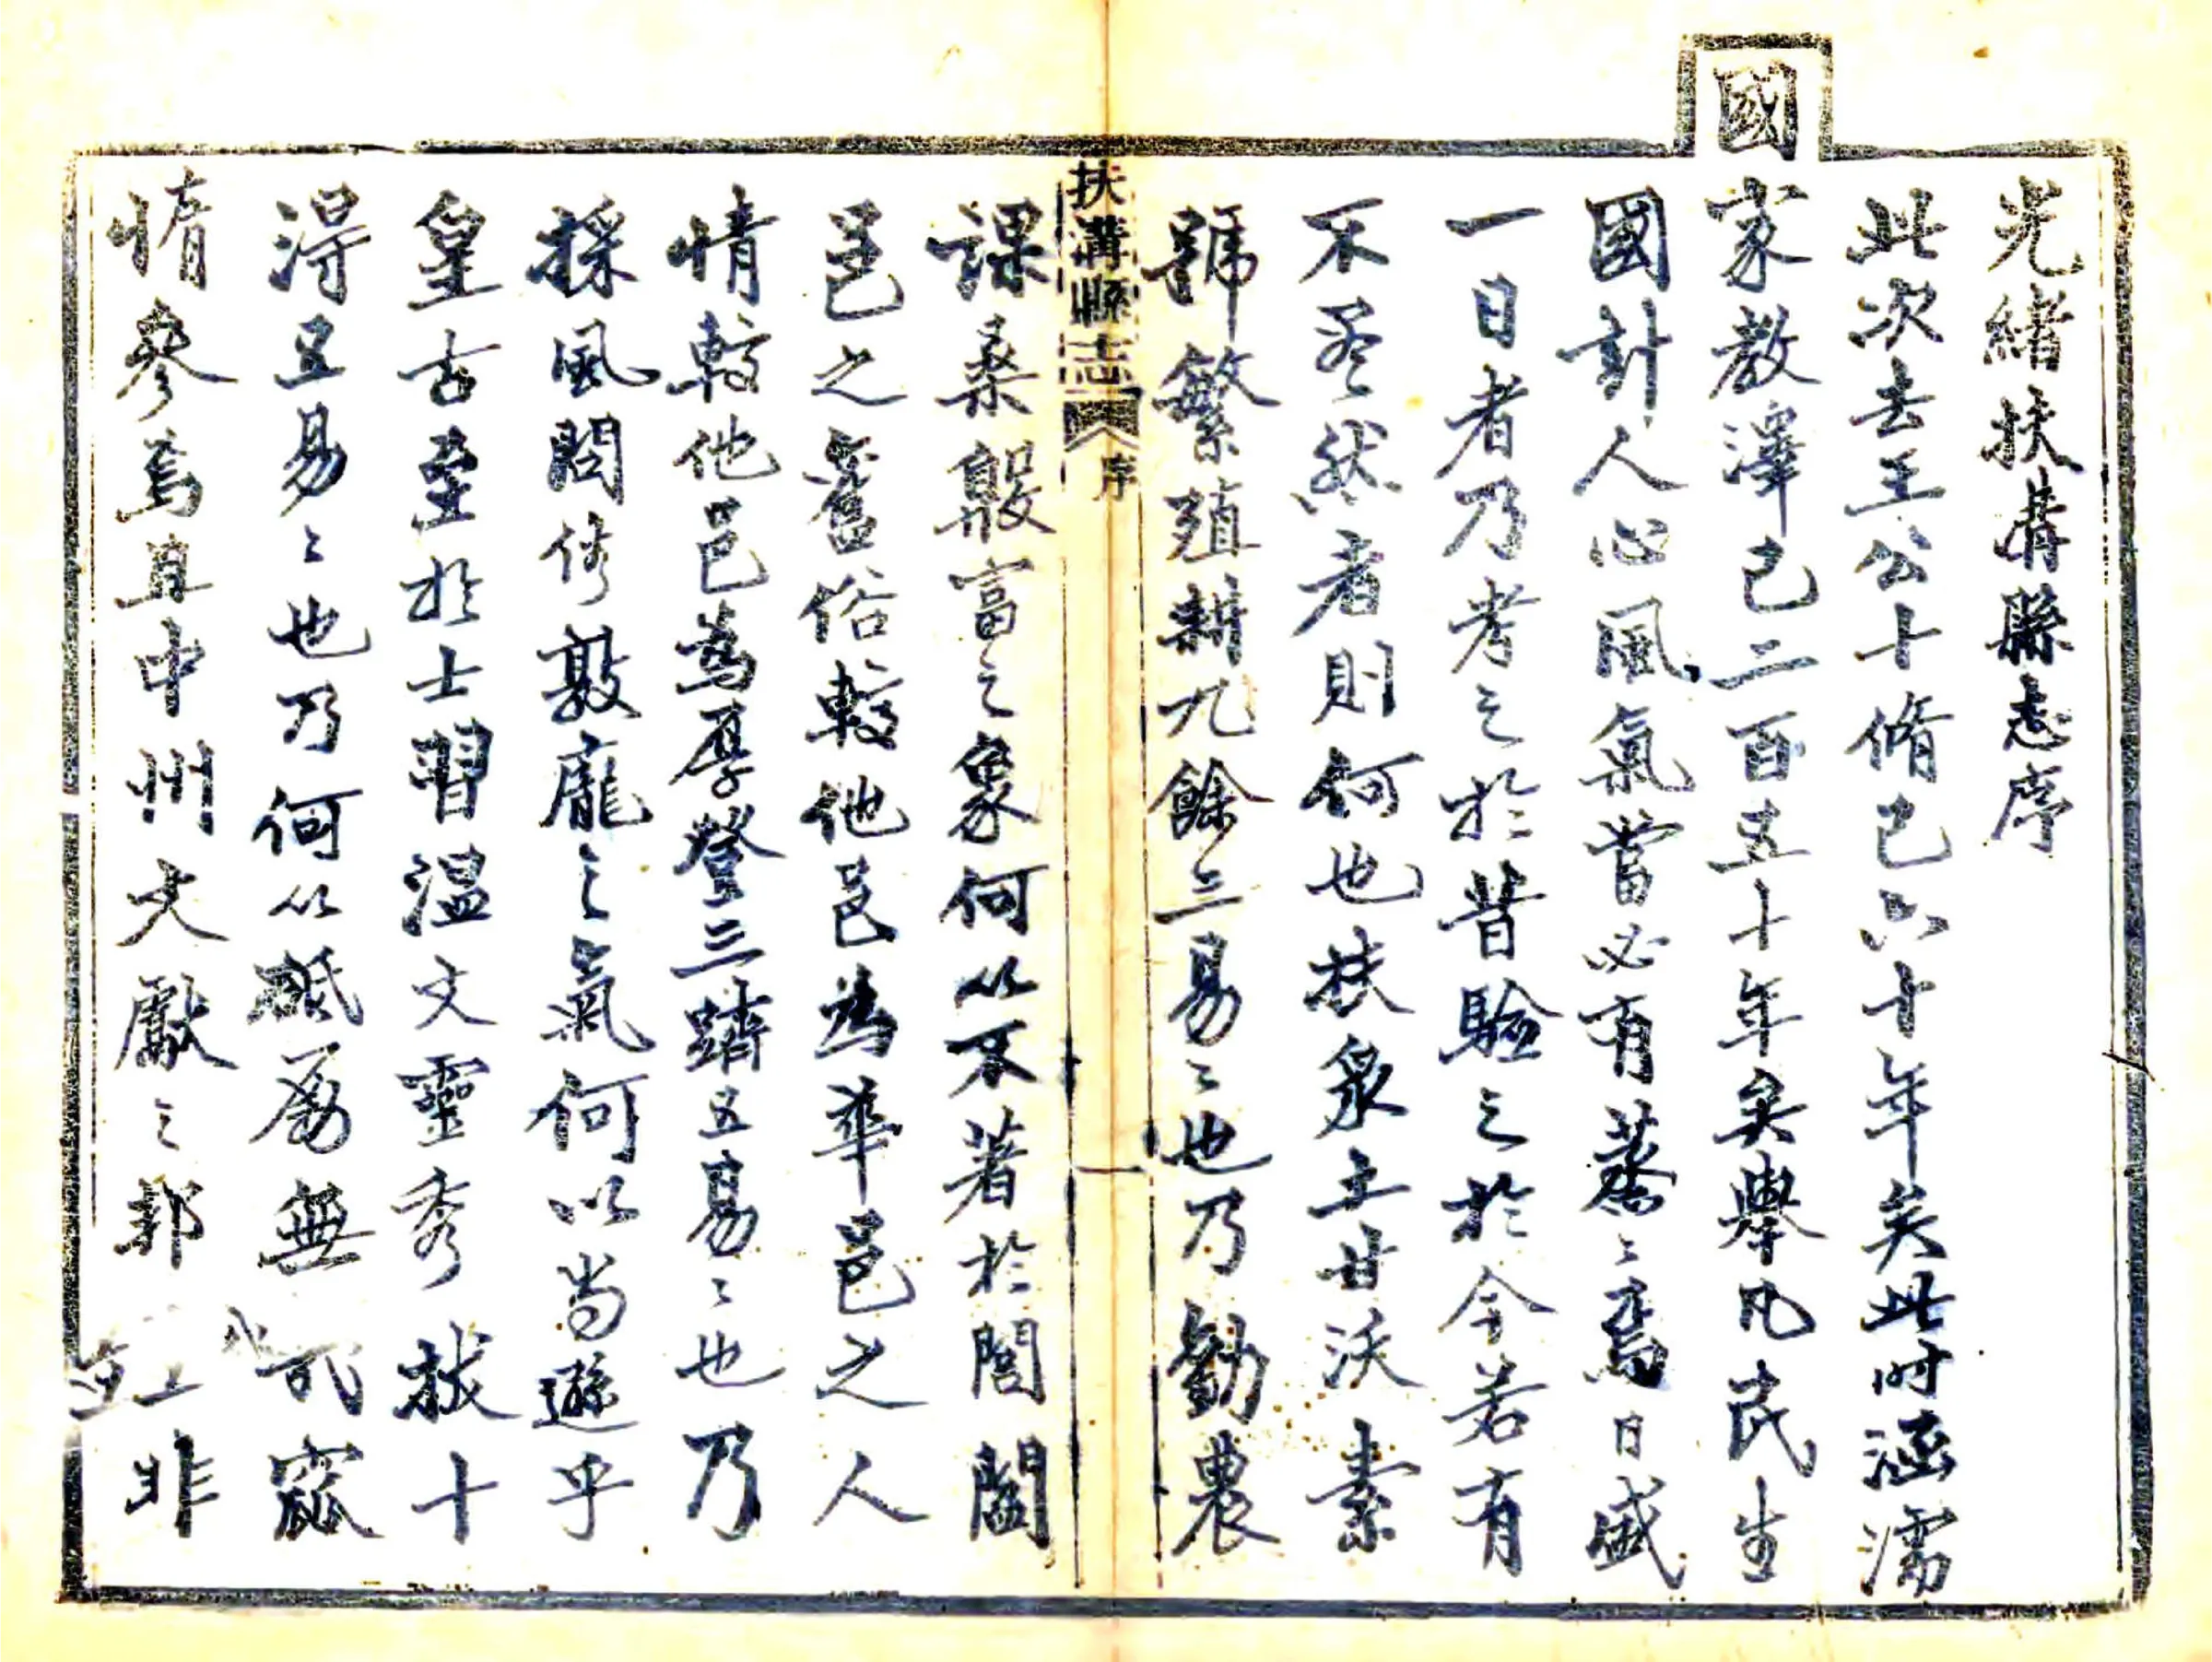 光緒扶溝縣志序
此次去王公十脩已六十年矣此時涵濡
國家教澤已二百五十年矣舉凡民生
國計人心風氣當必有蒸〻焉日盛
一日者乃考之於昔驗之於今若有
不盡然者則何也扶衆土甘沃素
號繁殖耕九餘三易〻也乃勸農
扶溝縣志
序
一
課桑殷富之象何以不著於閭閻
邑之舊俗較他邑為華邑之人
情較他邑為厚登三躋五易〻也乃
採風問俗敦龐之氣何以尚遜乎
皇古至於士習溫文靈秀拔十
得五易〻也乃何以砥礪無
惰參焉且中州文獻之邦 非